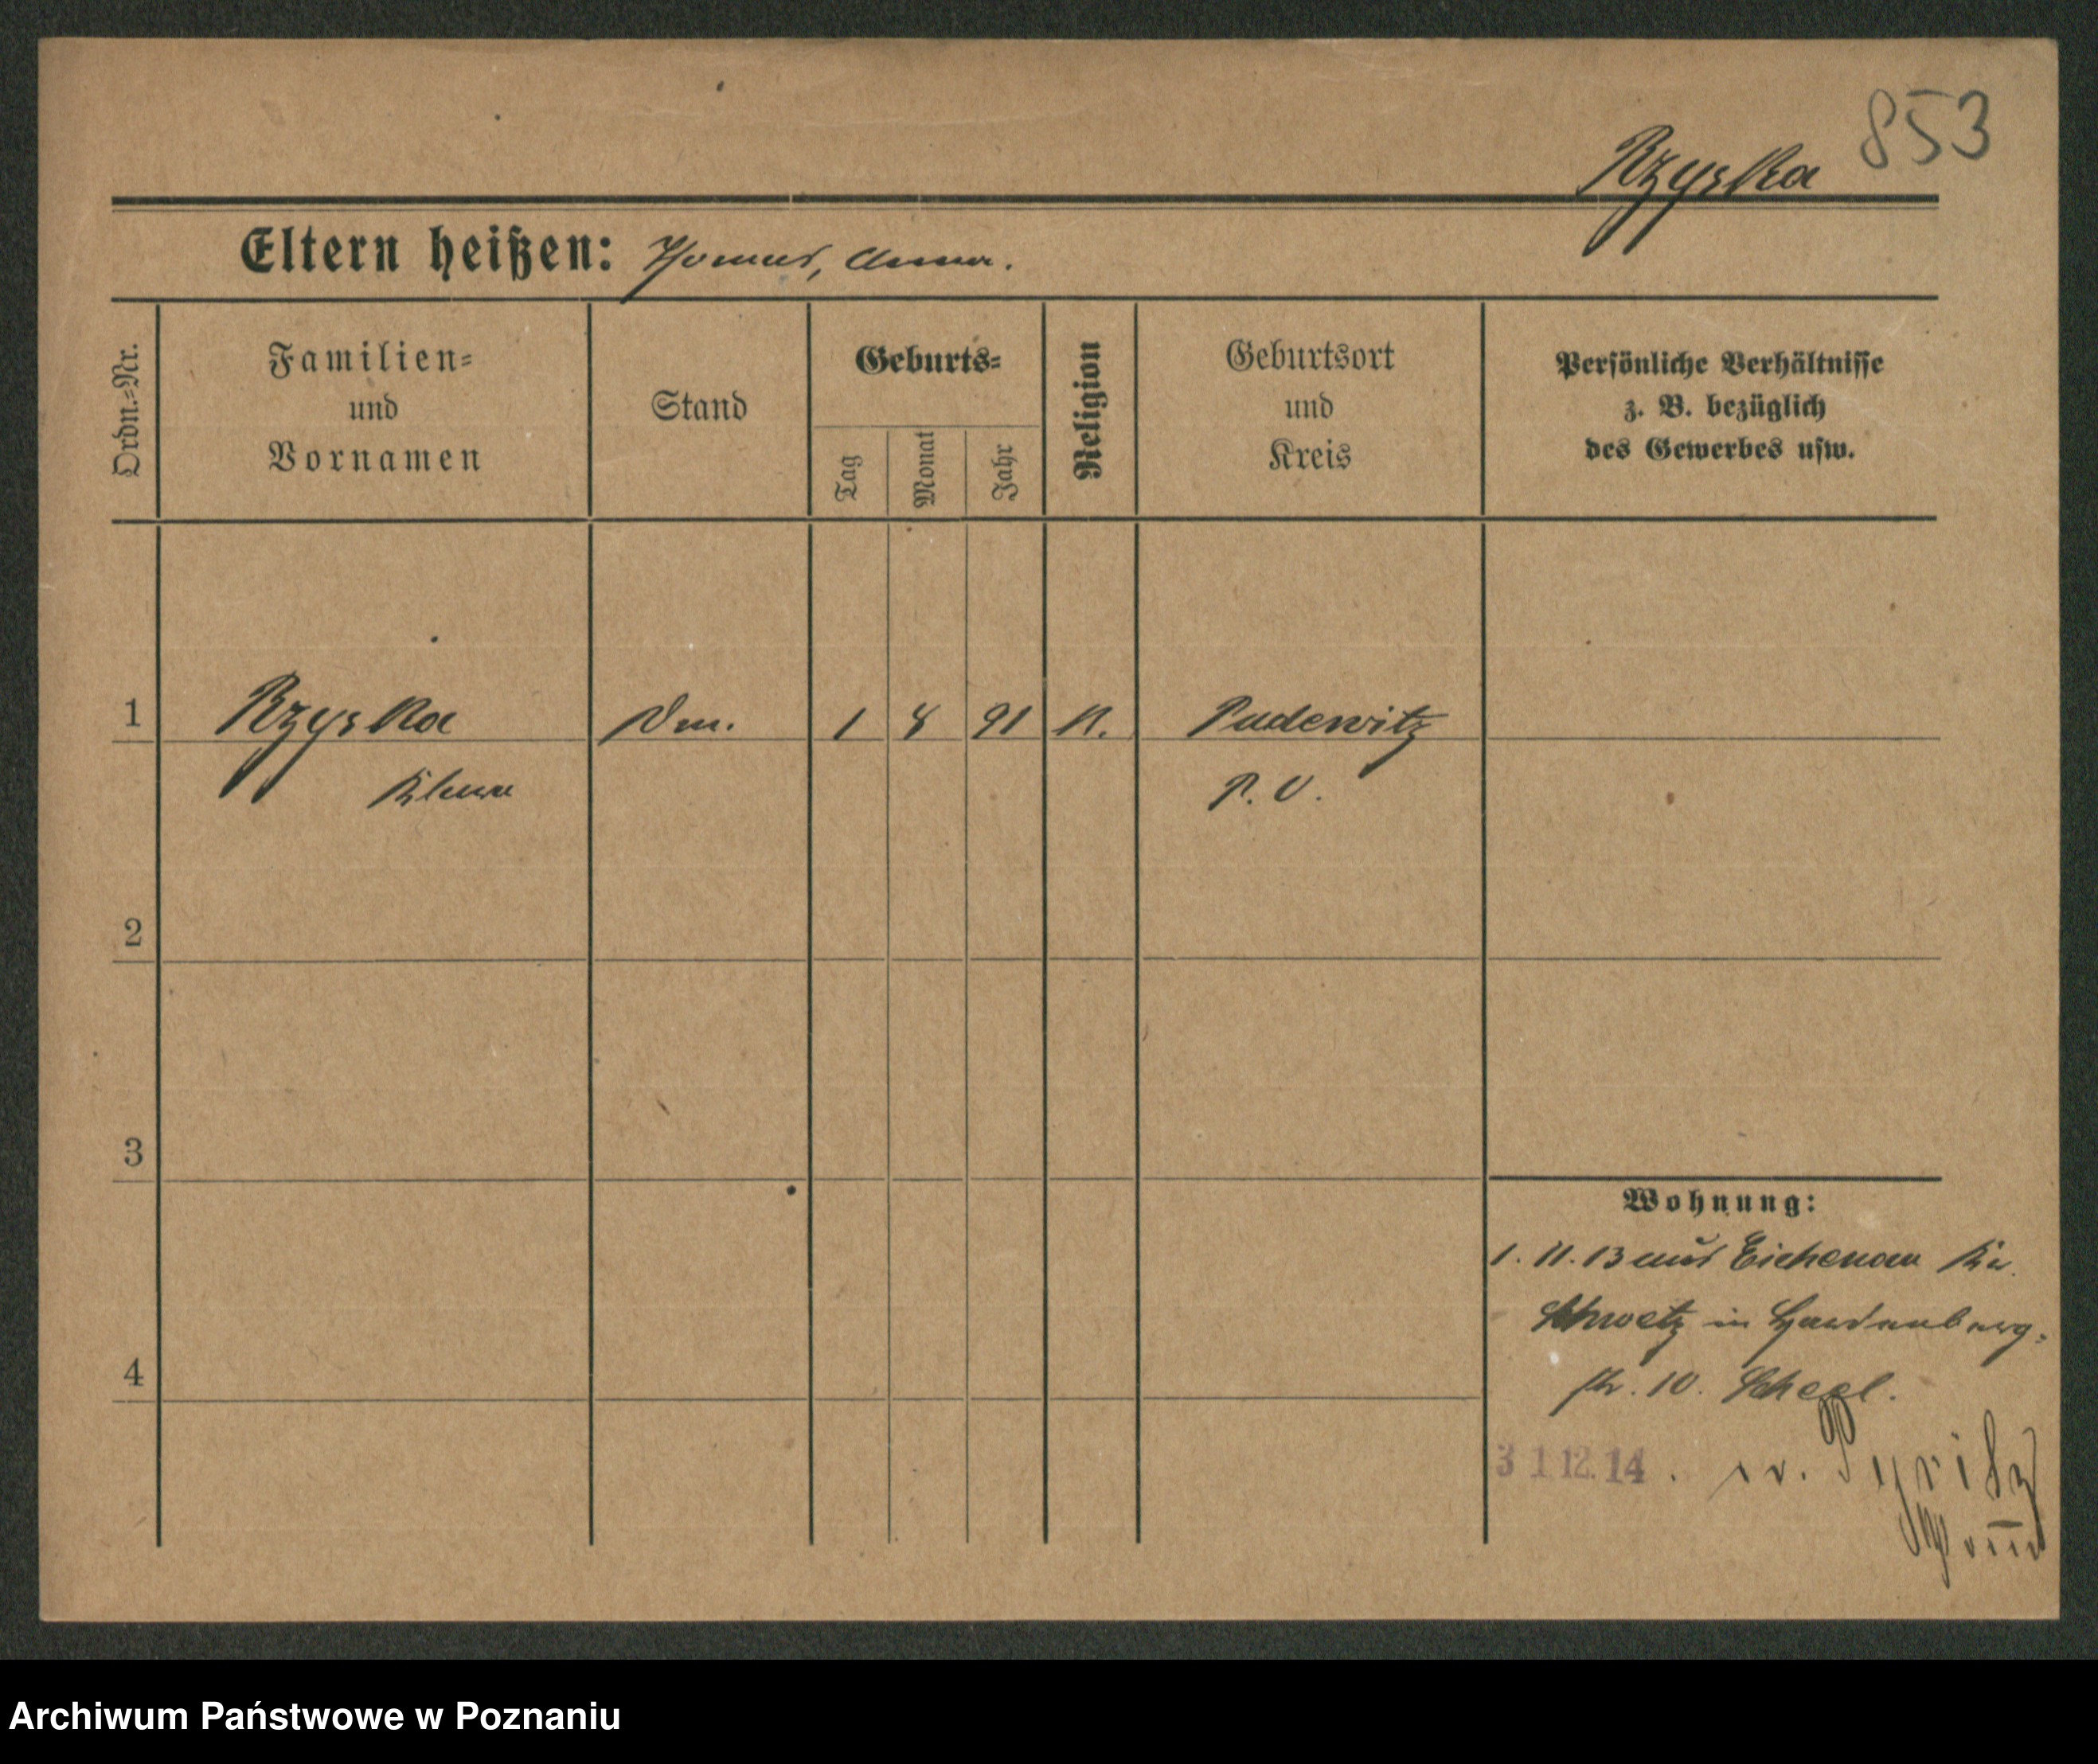 853
Rzyska
Eltern heißen: Thomas, Anna.
Ordn.-Nr.
Familien-
und
Vornamen
Stand
Geburts-
Tag
Monat
Jahr
Religion
Geburtsort
und
Kreis
Persönliche Verhältnisse
z. B. bezüglich
des Gewerbes usw.
1 Rzyska 1 8 91 K. Pudewitz
P. O.
2
3
4
Wohnung:
1. 11. 13 aus Eichenau Kr.
Schwetz in Hardenberg-
str. 10.
31 12. 14. Pyritz
Archiwum Państwowe w Poznaniu